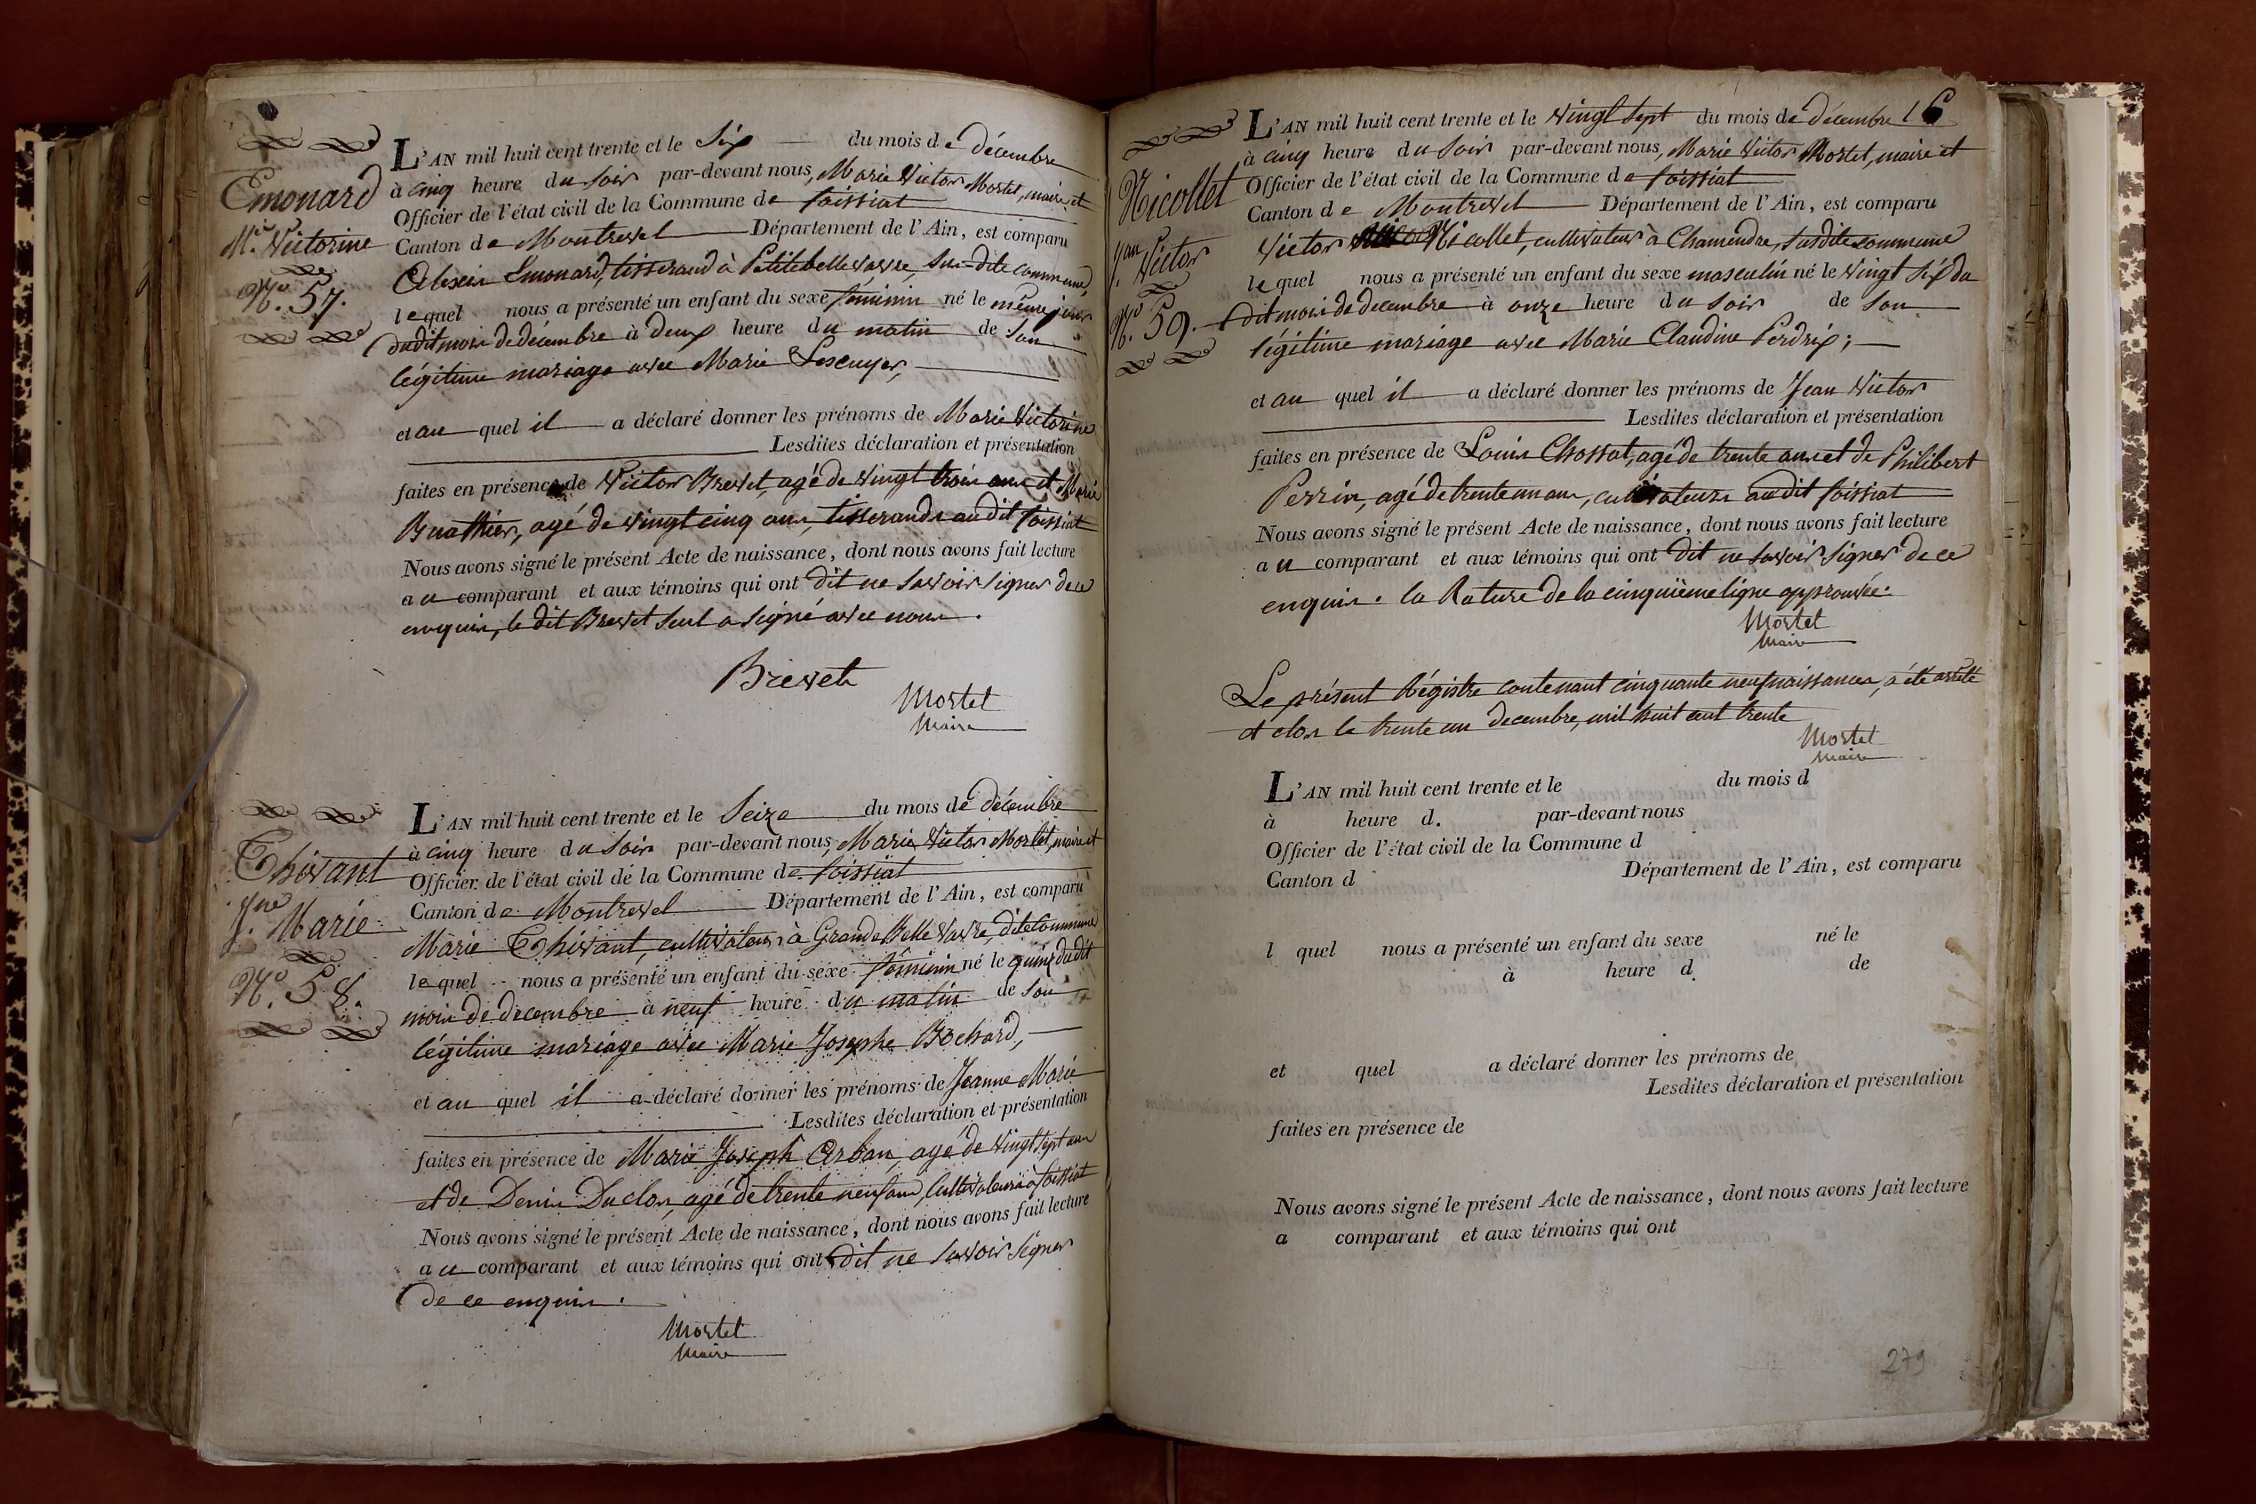 Emonard
M.ie Victorine
N.o 57.
L'AN mil huit cent trente et le Six du mois de décembre
à cinq heure du Soir par-devant nous, Marie Victor Mortel, maire et
Officier de l'état civil de la Commune de foissiat
Canton de Montrevel Département de l'Ain, est comparu
Alexis Emonard, tisserand à Petitebellevavre, sus-dite commune,
lequel nous a présenté un enfant du sexe féminin né le même jour
dudit mois de décembre à deux heure du matin de son
légitime mariage avec Marie Lescuyer,
et au quel il a déclaré donner les prénoms de Marie Victorine
Lesdites déclaration et présentation
faites en présence de Victor Brevet, agé de vingt trois ans et Marie
Buathier, agé de vingt cinq ans, tisserands audit foissiat
Nous avons signé le présent Acte de naissance, dont nous avons fait lecture
au comparant et aux témoins qui ont dit ne savoir signer de ce
enquis, le dit Brevet seul a signé avec nous.
Brevet
Mortel
Maire
Thivant
J.ne Marie
N.o 58.
L'AN mil huit cent trente et le Seize du mois de décembre
à cinq heure du Soir par-devant nous, Marie Victor Mortel, maire et
Officier de l'état civil de la Commune de foissiat
Canton de Montrevel Département de l'Ain, est comparu
Marie Thivant, cultivateur à Grande Belle Vavre, dite Commune
lequel nous a présenté un enfant du sexe féminin né le quinze dudit
mois de decembre à neuf heure du matin de son
légitime mariage avec Marie Josephe Bochard,
et au quel il a déclaré donner les prénoms de Jeanne Marie
Lesdites déclaration et présentation
faites en présence de Marie Joseph Arban, agé de vingt sept ans
et de Denis Duclos, agé de trente neuf ans, Cultivateurs à foissiat
Nous avons signé le présent Acte de naissance, dont nous avons fait lecture
au comparant et aux témoins qui ont dit ne savoir signer
de ce enquis.
Mortel
Maire
16
Nicollet
Jean Victor
N.o 59.
L'AN mil huit cent trente et le vingt sept du mois de décembre
à cinq heure du Soir par-devant nous, Marie Victor Mortel, maire et
Officier de l'état civil de la Commune de foissiat
Canton de Montrevel Département de l'Ain, est comparu
Victor Nicollet, cultivateur à Chamendre, susdite commune
lequel nous a présenté un enfant du sexe masculin né le vingt six du
dit mois de decembre à onze heure du soir de son
légitime mariage avec Marie Claudine Perdrix;
et au quel il a déclaré donner les prénoms de Jean Victor
Lesdites déclaration et présentation
faites en présence de Louis Chossat, agé de trente ans et de Philibert
Perrin, agé de trente un ans, cultivateurs audit foissiat
Nous avons signé le présent Acte de naissance, dont nous avons fait lecture
au comparant et aux témoins qui ont dit ne savoir signer de ce
enquis. la Rature de la cinquième ligne approuvée.
Mortel
Maire
Le présent Régistre contenant cinquante neuf naissances, a été arrêté
et clos le trente un decembre, mil huit cent trente
Mortel
Maire
L'AN mil huit cent trente et le du mois d
à heure d. par-devant nous
Officier de l'état civil de la Commune d
Canton d Département de l'Ain, est comparu
l quel nous a présenté un enfant du sexe né le
à heure d. de
et quel a déclaré donner les prénoms de
Lesdites déclaration et présentation
faites en présence de
Nous avons signé le présent Acte de naissance, dont nous avons fait lecture
a comparant et aux témoins qui ont
279